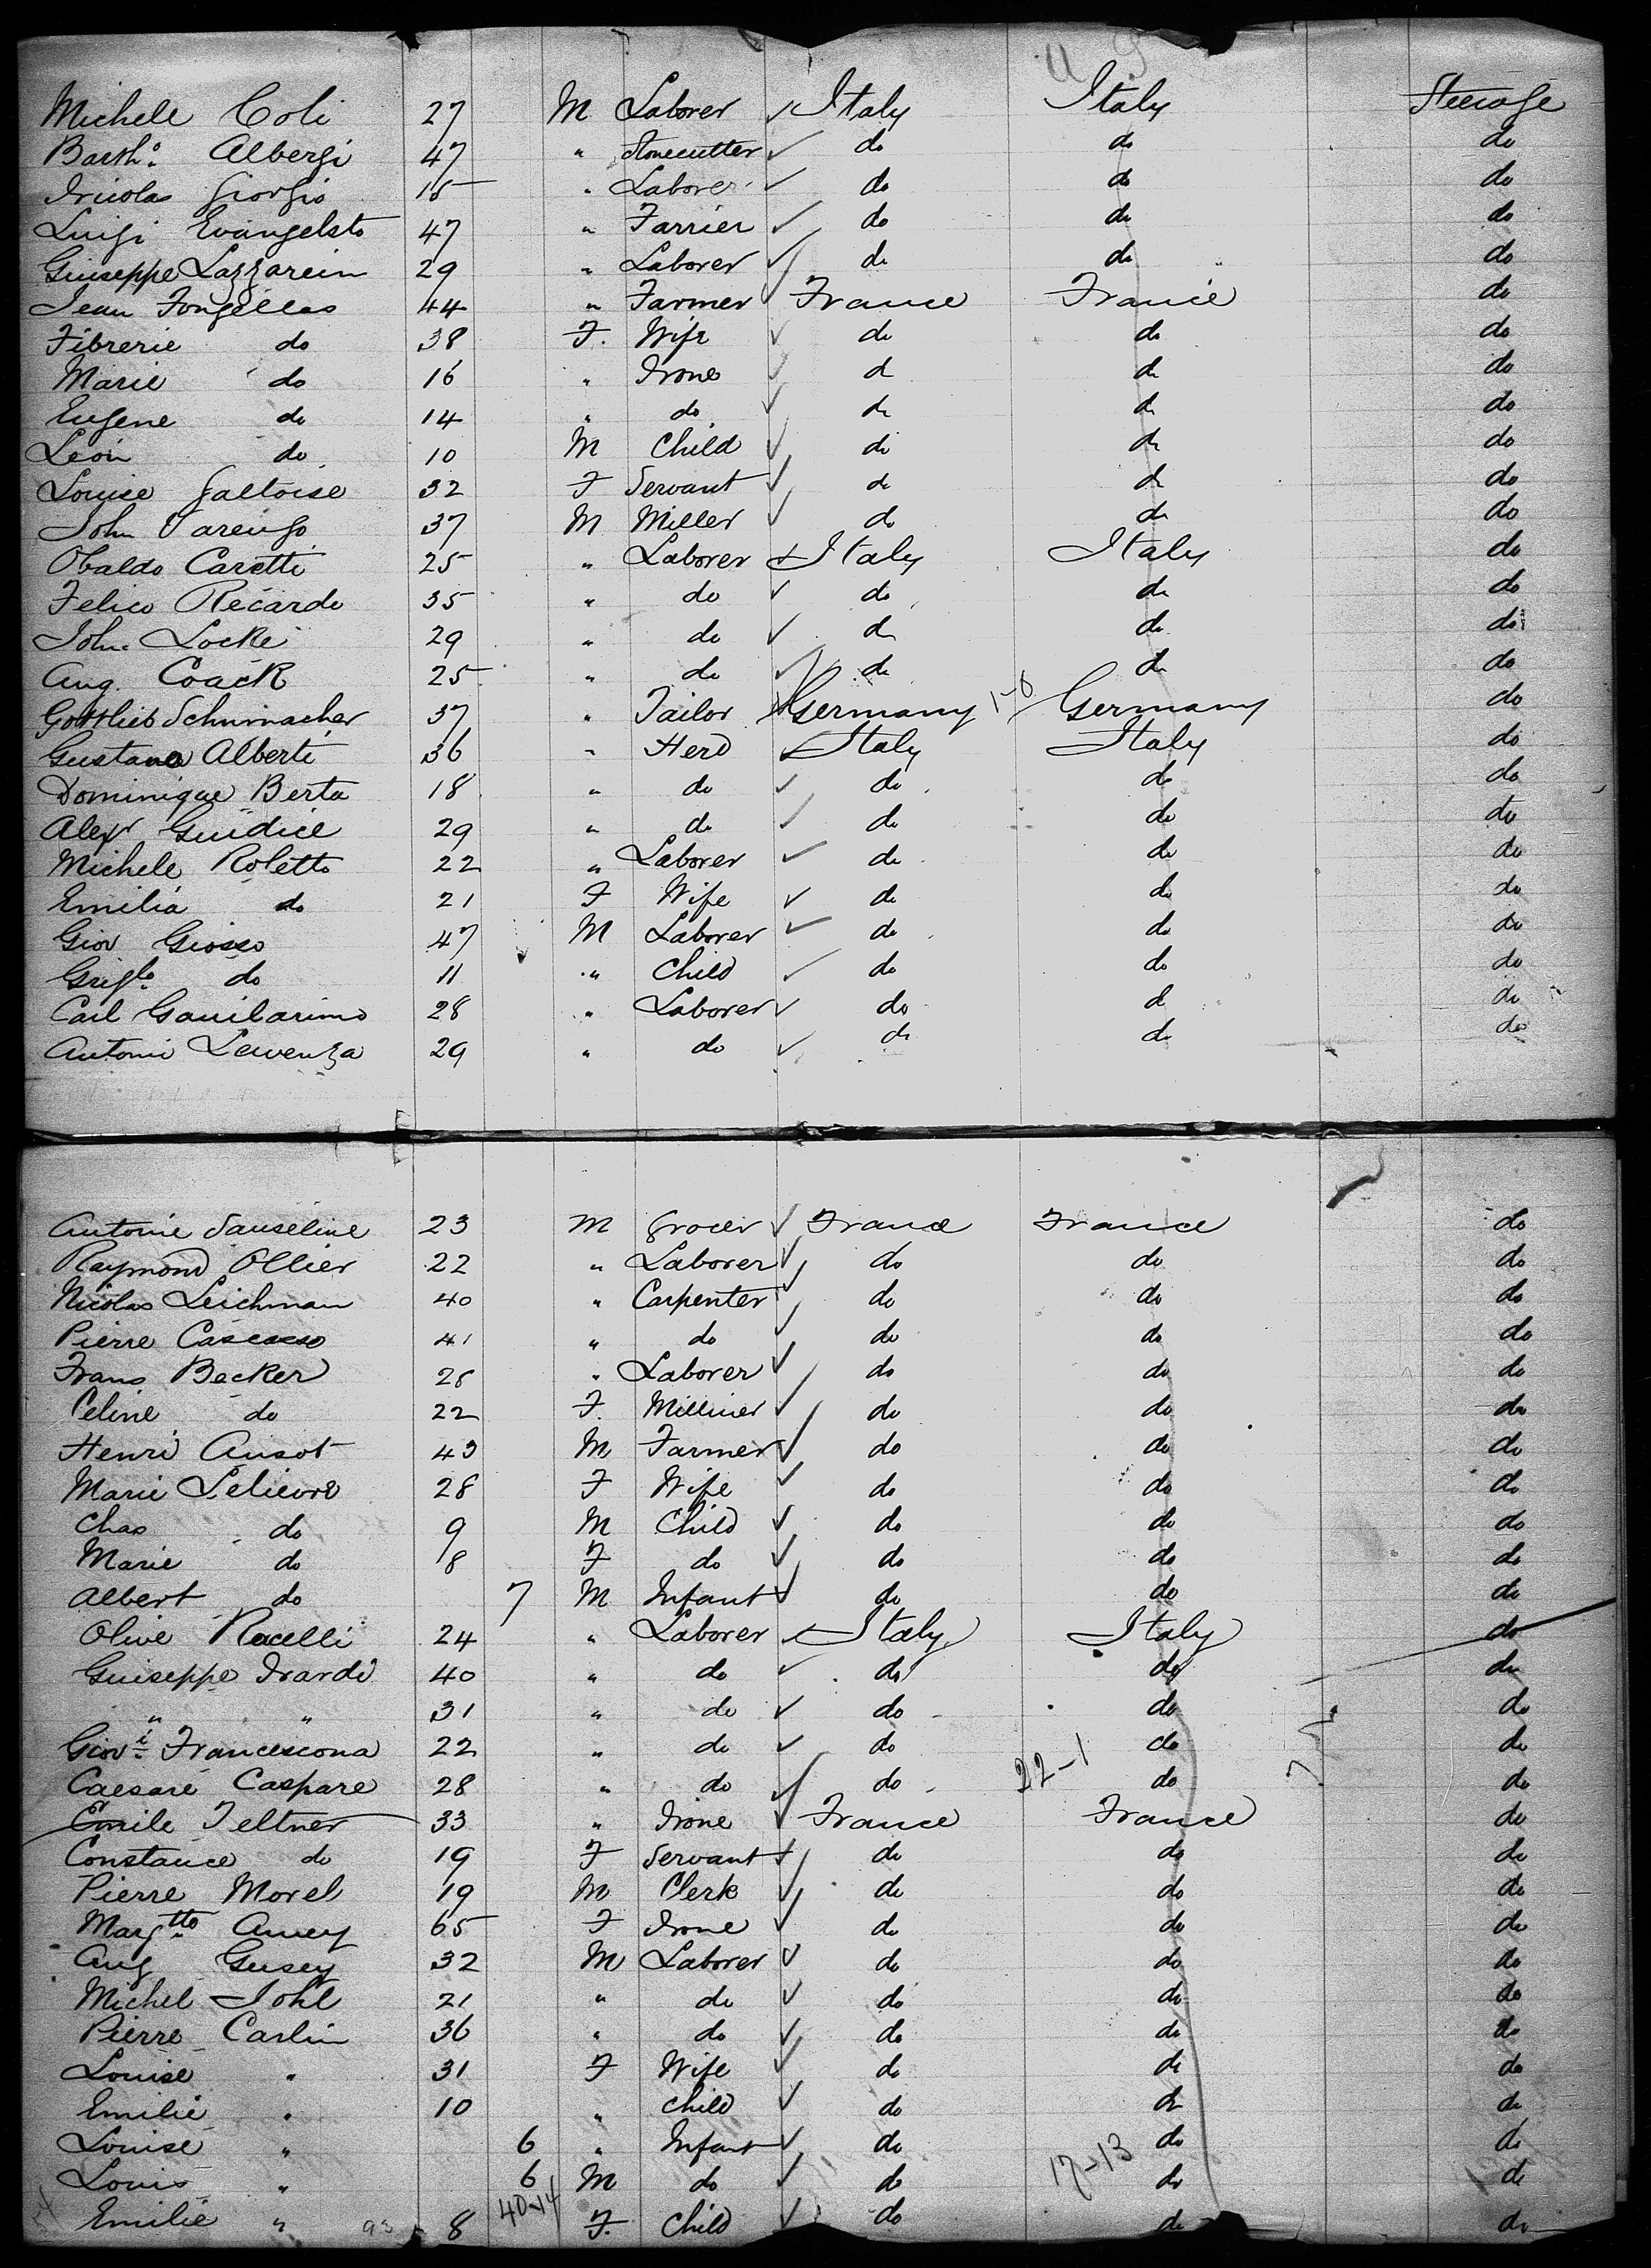 U S
Michele Coli 27 M Laborer ✓ Italy Italy Steerage
Barth.o Albergi 47 " Stonecutter ✓ do do do
Nicolas Giorgio 15 " Laborer ✓ do do do
Luigi Evangelsto 47 " Farrier ✓ do do do
Giuseppe Lazzarein 29 " Laborer ✓ do do do
Jean Fongellas 44 " Farmer ✓ France France do
Fibrerie do 38 F. Wife ✓ do do do
Marie do 16 " None ✓ do do do
Eugene do 14 " do ✓ do do do
Leon do 10 M Child ✓ do do do
Louise Galtoise 32 F Servant ✓ do do do
John Parengo 37 M Miller ✓ do do do
Obaldo Caretti 25 " Laborer ✓ Italy Italy do
Felico Recardo 35 " do ✓ do do do
John Locke 29 " do ✓ do do do
Aug. Coack 25 " do ✓ do do do
Gottlieb Schumacher 37 " Tailor Germany 1-0 Germany do
Gustavo Alberti 36 " Herd ✓ Italy Italy do
Dominique Berta 18 " do ✓ do do do
Alexr Guidice 29 " do ✓ do do do
Michele Roletto 22 " Laborer ✓ do do do
Emilia do 21 F Wife ✓ do do do
Giov Giosso 47 M Laborer ✓ do do do
Grigl.o do 11 " Child ✓ do do do
Carl Gauilarimo 28 " Laborer ✓ do do do
Antoni Lewenza 29 " do ✓ do do do
Antonie Sauseline 23 M Grocer ✓ France France do
Raymond Ollier 22 " Laborer ✓ do do do
Nicolas Leichman 40 " Carpenter ✓ do do do
Pierre Cascasso 41 " do ✓ do do do
Frans Becker 28 " Laborer ✓ do do do
Celine do 22 F. Milliner ✓ do do do
Henri Ausot 43 M Farmer ✓ do do do
Marie Lelievre 28 F Wife ✓ do do do
Chas do 9 M Child ✓ do do do
Marie do 8 F do ✓ do do do
Albert do 7 M Infant ✓ do do do
Olive Rocelli 24 " Laborer ✓ Italy Italy do
Guiseppe Nardi 40 " do ✓ do do do
" " 31 " do ✓ do do do
Giov.i Francescona 22 " do ✓ do do do
Caesare Caspare 28 " do ✓ do 22-1 do do
Emile Feltner 33 " None ✓ France France do
Constance do 19 F Servant ✓ do do do
Pierre Morel 19 M Clerk ✓ do do do
Margtto Amey 65 F None ✓ do do do
Aug Gusey 32 M Laborer ✓ do do do
Michel Johl 21 " do ✓ do do do
Pierre Carlin 36 " do ✓ do do do
Louise " 31 F Wife ✓ do do do
Emilie " 10 " Child ✓ do do do
Louise " 6 " Infant ✓ do do do
Louis " 6 M do ✓ do 17-13 do do
Emilie " 8 40-14 F. Child ✓ do do do